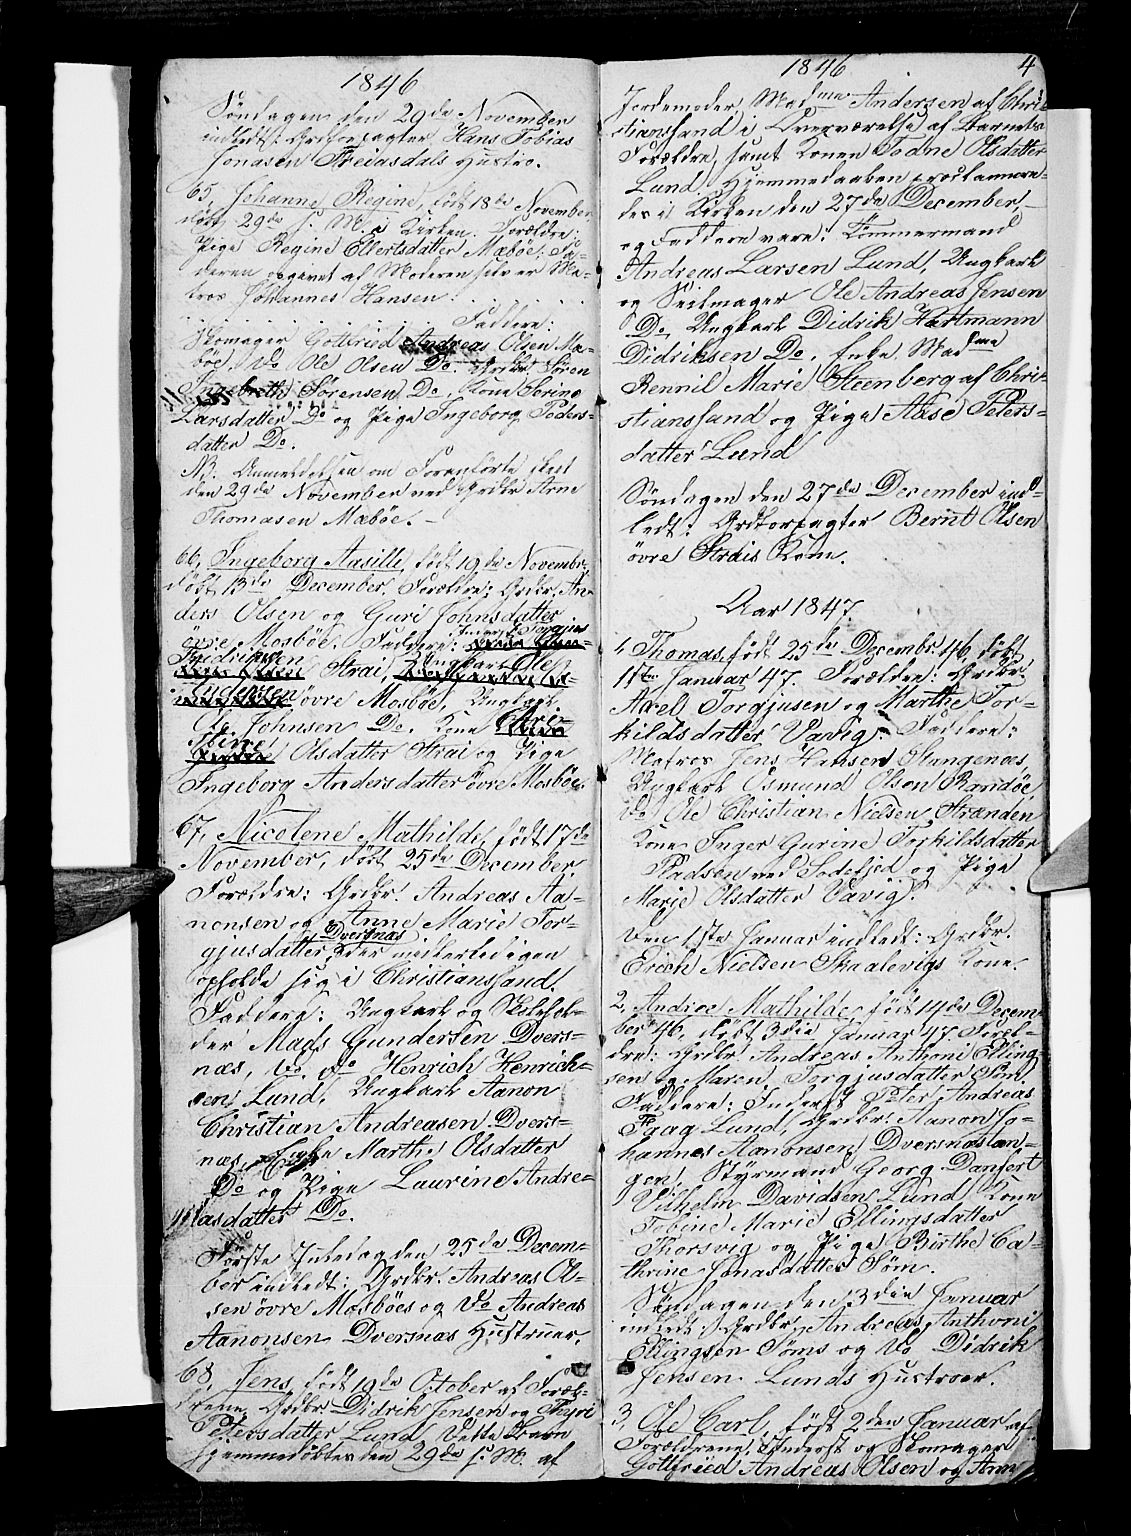 1846
Søndagen den 29de November
indledt: Grdforpagter Hans Tobias
Jonasen Fredasdals Hustro.
65, Johanne Regine, født 18de November
døbt 29de s. M. i Kirken. Forældre:
Pige Regine Ellertsdatter Mæbøe; Fa-
deren opgivet af Moderen selv er Ma-
tros Johannes Hansen.
Faddere:
Skomager Gottfried Andreas Olsen Mæ-
bøe, do Ole Olsen Do. Grdbr. Søren
Sørensen Do, Kone Serine
Larsdatter Do og Pige Ingeborg Peders-
datter Do.
NB. Anmeldelsen om Foranførte skeet
den 29de November ved Grdbr Arne
Thomasen Mæbøe. –
66, Ingeborg Aasille, født 19de Novembr,
døbt 13de December. Forældre: Grdbr. An-
ders Olsen og Guri Johnsdatter
øvre Mosbøe. Faddere: Torgius
Fredriksen Strai, Ungkarl Ole
Andersen øvre Mosbøe, Ungkarl
Ole Johnsen Do. Kone
Olsdatter Strai og Pige
Ingeborg Andersdatter øvre Mosbøe.
67, Nicolene Mathilde, født 17de
November, døbt 25de December.
Forældre: Grdbr. Andreas Aa-
nonsen og Anne Marie Tor-
gjusdatter Dversnæs, der midlertidigen
opholde sig i Christianssand.
Faddere: Ungkarl og Skolehol-
der Mads Gundersen Dvers-
næs, do do Henrich Henrich-
sen Lund, Ungkarl Aanon
Christian Andreasen Dvers-
næs, Enke Marthe Olsdatter
Do og Pige Laurine Andre-
asdatter Do.
Første Juledag den 25de Decem-
ber indledt: Grdbr. Andreas Ol-
sen øvre Mosbøes og do Andreas
Aanonsen Dversnæs Hustruer.
68 Jens, født 19de October af Foræl-
drene, Grdbr: Didrik Jensen og Thyri
Petersdatter Lund. Dette Barn
hjemmedøbtes den 29de s. M. af
1846 4
Jordemoder Madme Andersen af Chri-
stianssand i Overværelse af Barnets
Forældre, samt Konen Todne Olsdatter
Lund. Hjemmedaaben proclamere-
des i Kirken den 27de December,
og Faddere vare: Tømmermand
Andreas Larsen Lund, Ungkarl
og Seilmager Ole Andreas Jensen
Do, Ungkarl Didrik Hartmann
Didriksen Do, Enke Madme
Rennil Marie Steenberg af Chri-
stianssand og Pige Aase Peters-
datter Lund
Søndagen den 27de December ind-
ledt: Grdforpagter Bernt Olsen
øvre Strais Kone.
Aar 1847.
1, Thomas, født 25de Decembr 46, døbt
1ste Januar 47. Forældre: Grdbr:
Axel Torgjusen og Marthe Tor-
kildsdatter Vavig. Faddere:
Matros Jens Hansen Stangenæs,
Ungkarl Osmund Olsen Randøe,
do Ole Christian Nielsen Stranden
Kone Inger Gurine Torkildsdatter
Pladsen ved Sodefjed og Pige
Marje Olsdatter Vavig.
Den 1ste Januar indledt: Grdbr.
Erich Nielsen Skaalevigs Kone.
2, Andrea Mathilde, født 14de Decem-
ber 46, døbt 3die Januar 47. Foræl-
dre: Grdbr Andreas Anthoni Elling-
sen og Maren Torgjusdatter Søm.
Faddere: Inderst Peter Andreas
Faag Lund, Grdbr. Aanon Jo-
hannes Aanonsen Dversnæsan-
gen, Styrmand Georg Danfert
Vilhelm Davidsen Lund, Kone
Tobine Marie Ellingsdatter
Thorsvig og Pige Birthe Ca-
thrine Jonasdatter Søm.
Søndagen den 3die Januar
indledt: Grdbr: Andreas Anthoni
Ellingsen Søms og do Didrik
Jensen Lunds Hustroer.
3, Ole Carl, født 2den Januar af
Forældrene, Inderst og Skomager
Gottfried Andreas Olsen og Ann